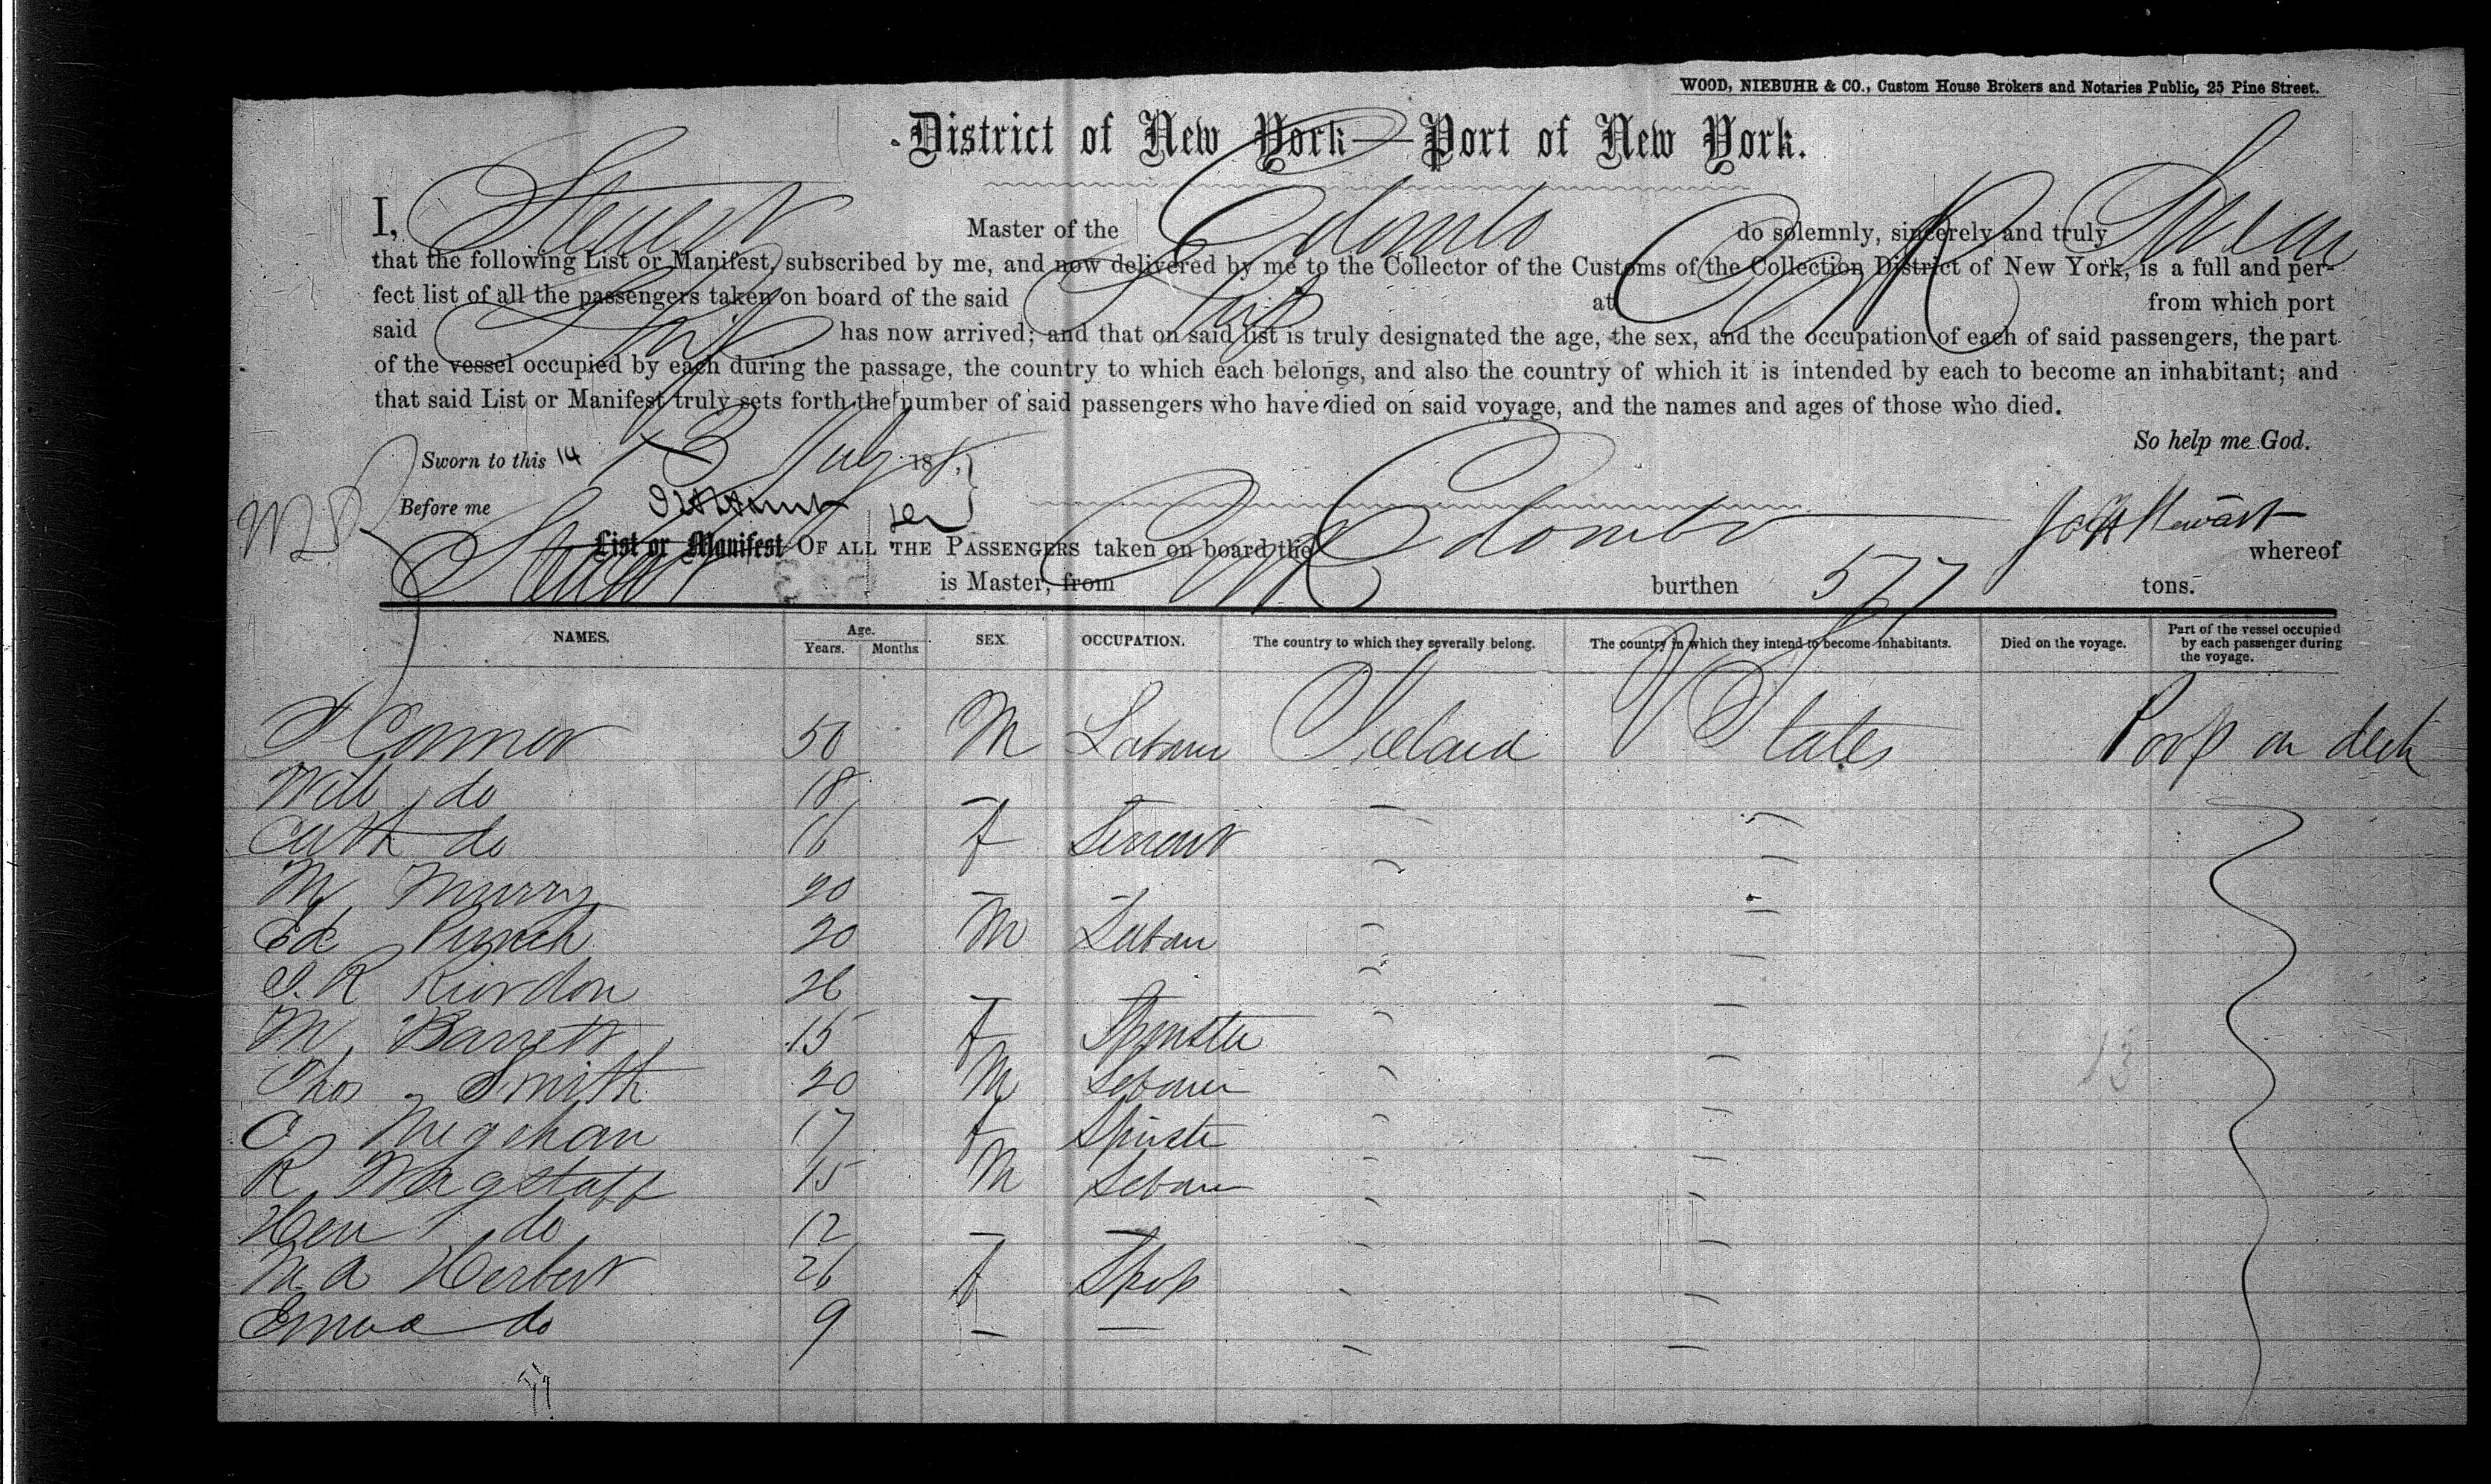 WOOD, NIEBUHR & CO., Custom House Brokers and Notaries Public, 25 Pine Street.
District of New York—Port of New York.
I, Stewart Master of the Colombo do solemnly, sincerely and truly Swear
that the following List or Manifest, subscribed by me, and now delivered by me to the Collector of the Customs of the Collection District of New York, is a full and per-
fect list of all the passengers taken on board of the said Ship at Cork from which port
said Ship has now arrived; and that on said list is truly designated the age, the sex, and the occupation of each of said passengers, the part
of the vessel occupied by each during the passage, the country to which each belongs, and also the country of which it is intended by each to become an inhabitant; and
that said List or Manifest truly sets forth the number of said passengers who have died on said voyage, and the names and ages of those who died.
So help me God.
Sworn to this 14 13 July 18
Before me
Stewart
List or Manifest OF ALL THE PASSENGERS taken on board the Colombo whereof
Stewart is Master, from Cork burthen 577 tons.
NAMES. Age. Years. Months SEX OCCUPATION. The country to which they severally belong. The country in which they intend to become inhabitants. Died on the voyage. Part of the vessel occupied by each passenger during the voyage.
Connor 50 M Labour Ireland U States Poop on deck
Will do 18 —
Cath do 16 f Servant
M Murry 20 —
Ed 20 M Labour
R Riordon 26 —
M Barrett 15 f Spinster
Thos Smith 20 M Labour
C Megehan 17 f Spinste
R Wagstaff 15 M Labour
Hen do 12 —
M A Herbert 26 f
Emma do 9 — —
13